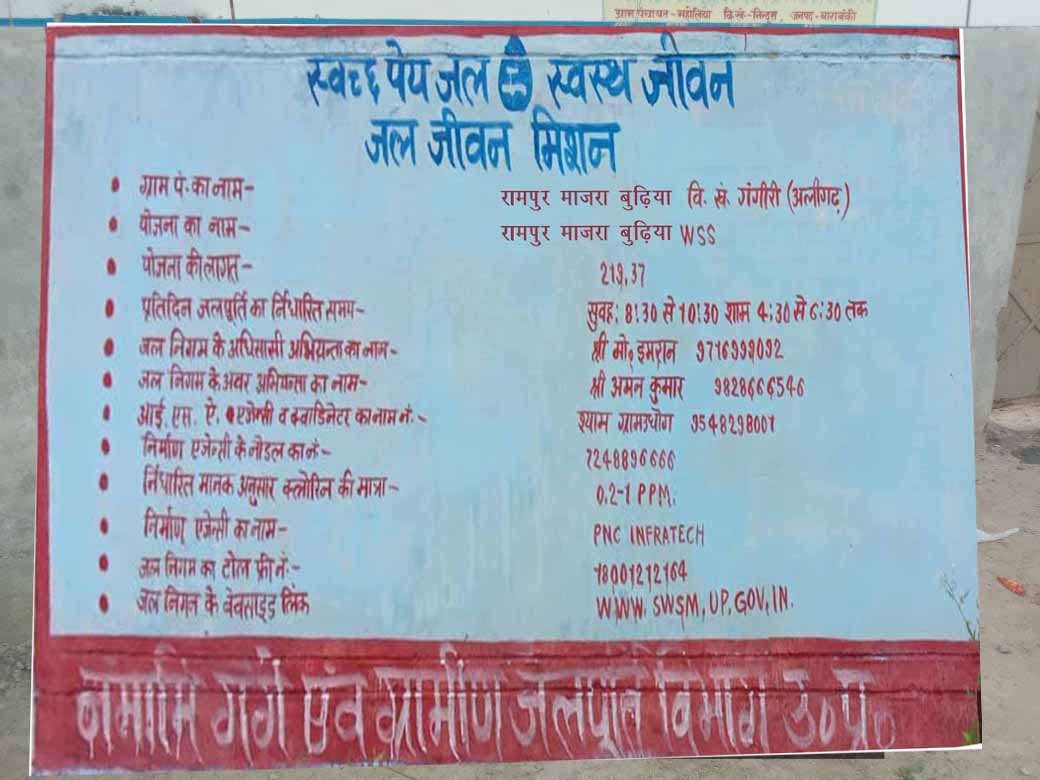 ग्राम पंचायत-महोलिया वि.खं.-निन्दुरा, जनपद-बाराबंकी
स्वच्छ पेय जल स्वस्थ जीवन
जल जीवन मिशन
• ग्राम पं. का नाम- रामपुर माजरा बुढ़िया वि. खं. गंगीरी (अलीगढ़)
• योजना का नाम- रामपुर माजरा बुढ़िया WSS
• योजना की लागत- 219.37
• प्रतिदिन जलपूर्ति का र्निधारित समय- सुवह: 8:30 से 10:30 शाम 4:30 से 6:30 तक
• जल निगम के अधिसासी अभियन्ता का नाम- श्री मो० इमरान 9716999092
• जल निगम के अवर अभियन्ता का नाम- श्री अमन कुमार 9828666546
• आई. एस. ऐ. एजेन्सी व क्वाडिनेटर का नाम नं.- श्याम ग्रामउधोग 9548298001
• निर्माण एजेन्सी के नोडल का नं- 7248896666
• र्निधारित मानक अनुसार क्लोरिन की मात्रा- 0.2-1 PPM.
• निर्माण एजेन्सी का नाम- PNC INFRATECH
• जल निगम का टोल फ्री नं.- 18001212164
• जल निगम के वेबसाइड लिंक WWW. SWSM, UP. GOV, IN.
नमामि गंगे एवं ग्रामीण जलपूर्ति विभाग उ०प्र०